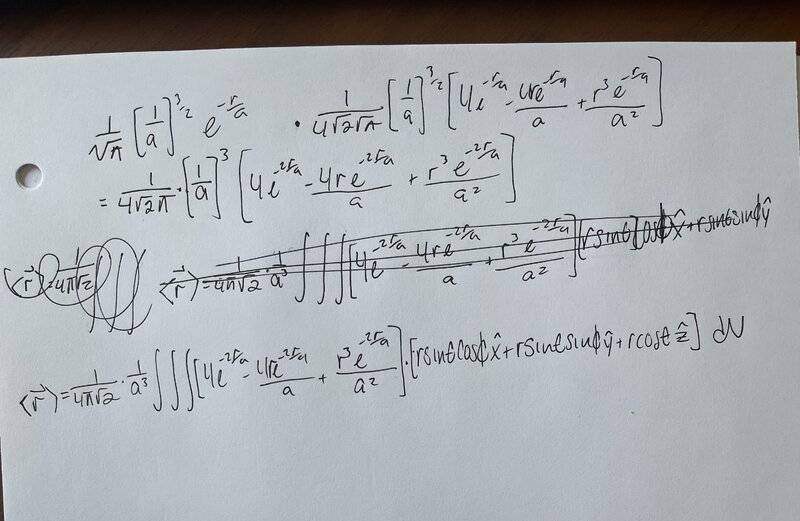 1/√π [1/a]^3/2 e^-r/a · 1/4√2√π [1/a]^3/2 [4e^-r/a - 4re^-r/a/a + r^3e^-r/a/a^2]
= 1/4√2π · [1/a]^3 [4e^-2r/a - 4re^-2r/a/a + r^3e^-2r/a/a^2]
⟨r⃗⟩ = 1/4π√2 ∫∫∫ ⟨r⃗⟩ = 1/4π√2 · 1/a^3 ∫∫∫ [4e^-2r/a - 4re^-2r/a/a + r^3e^-2r/a/a^2] [rsinθ] cosϕx̂ + rsinθsinϕŷ
⟨r⃗⟩ = 1/4π√2 · 1/a^3 ∫∫∫ [4e^-2r/a - 4re^-2r/a/a + r^3e^-2r/a/a^2] · [rsinθcosϕx̂ + rsinθsinϕŷ + rcosθẑ] dV